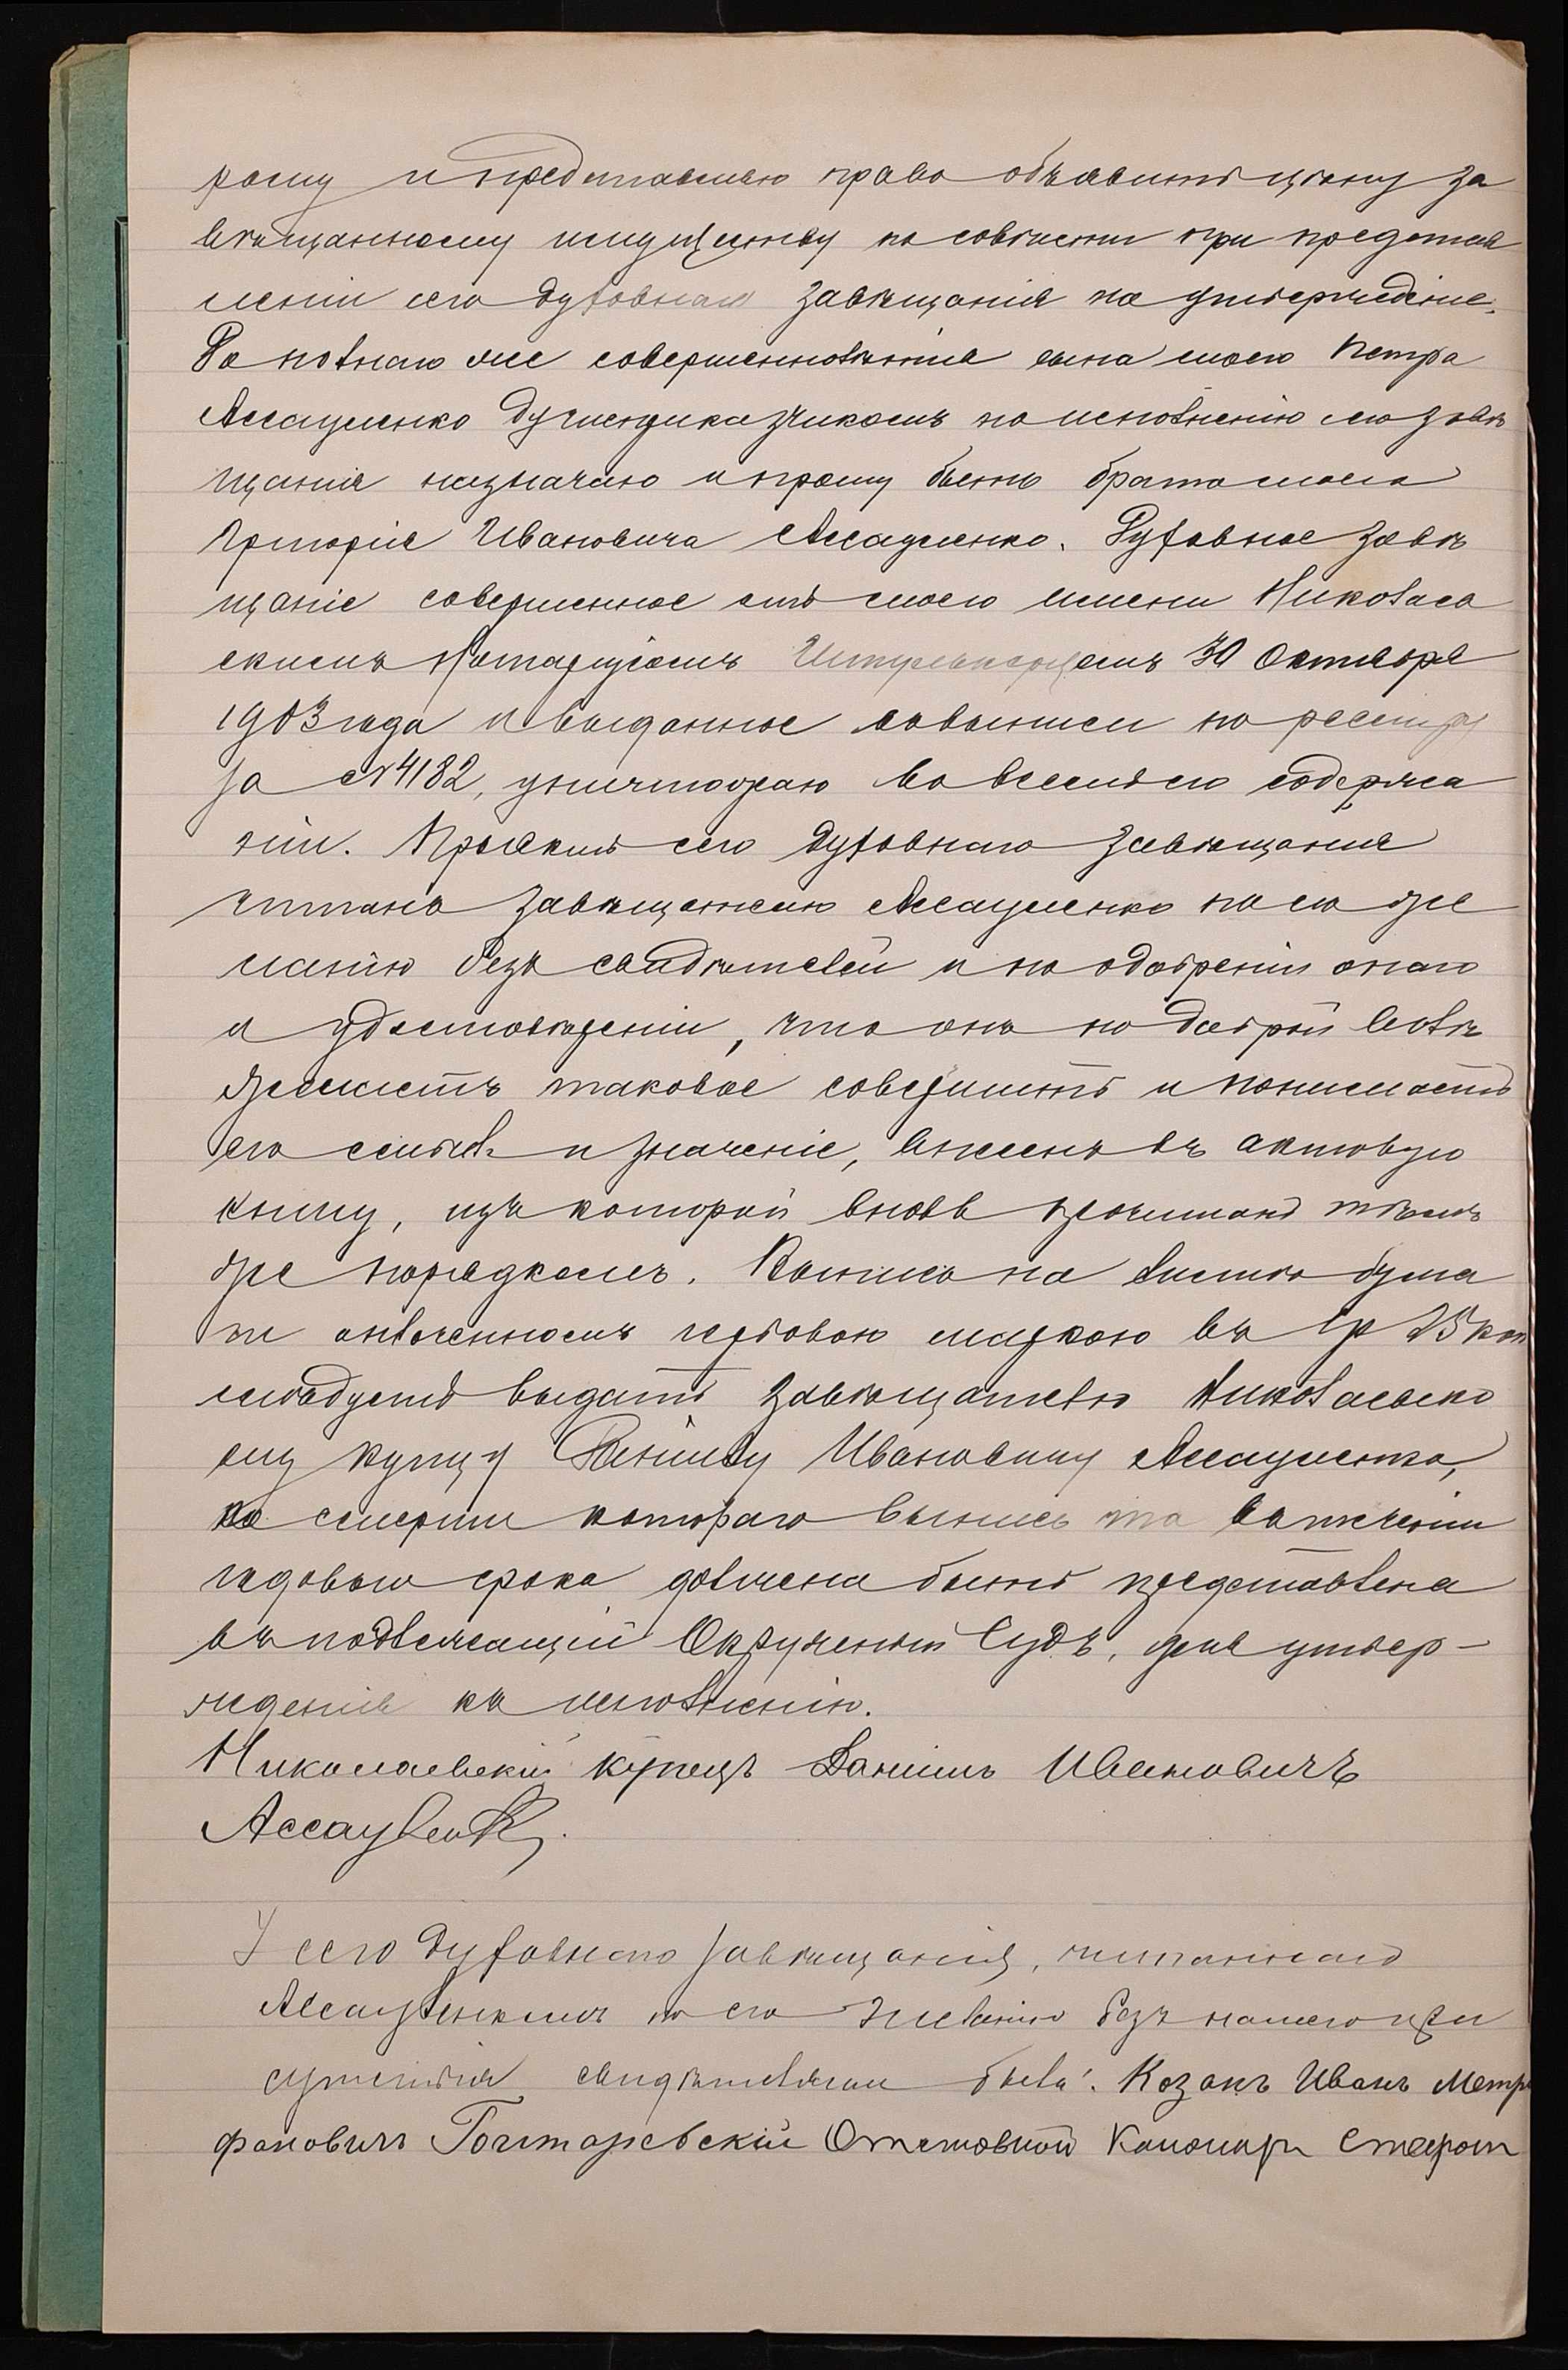 рому и предоставляю право объявить цѣну за
вѣщанному имуществу по совѣсти при представ
леніи сего духовнаго завѣщанія на утвержденіе.
До полнаго же совершеннолѣтія сына моего Петра
Ассауленко душеприказчикомъ по исполненію сего завѣ
щанія назначаю и прошу быть брата моего
Григорія Ивановича Ассауленко. Духовное завѣ
щаніе совершенное отъ моего имени Николаев
скимъ Нотаріусомъ 30 Октября
1903 года и выданное въ выписи по реестру
за №4182, уничтожаю во всемъ его содержа
ніи. Проектъ сего духовнаго завѣщанія
читанъ завѣщателю Ассауленко по его же
ланію безъ свидѣтелей и по одобреніи онаго
и удостовѣреніи, что онъ по доброй волѣ
желаетъ таковое совершить и понимаетъ
его смыслъ и значеніе, внесенъ въ актовую
книгу, изъ которой вновь прочитанъ тѣмъ
же порядкомъ. Выпись на листѣ бума
ги оплоченномъ гербовою маркою въ 1р 25 коп
слѣдуетъ выдать завѣщателю Николаевско
му купцу Даніилу Ивановичу Ассауленко,
по смерти котораго выпись та въ теченіи
годоваго срока должна быть представлена
въ подлежащій Окружный Судъ, для утвер-
жденія къ исполненію.
Николаевскій купецъ Даніилъ Ивановичъ
Ассауленко.
У сего духовнаго завѣщанія, читаннаго
Ассауленкомъ по его желанію безъ нашего при
сутствія свидѣтелями были: Козакъ Иванъ Метро
фановичъ Отставной Старш